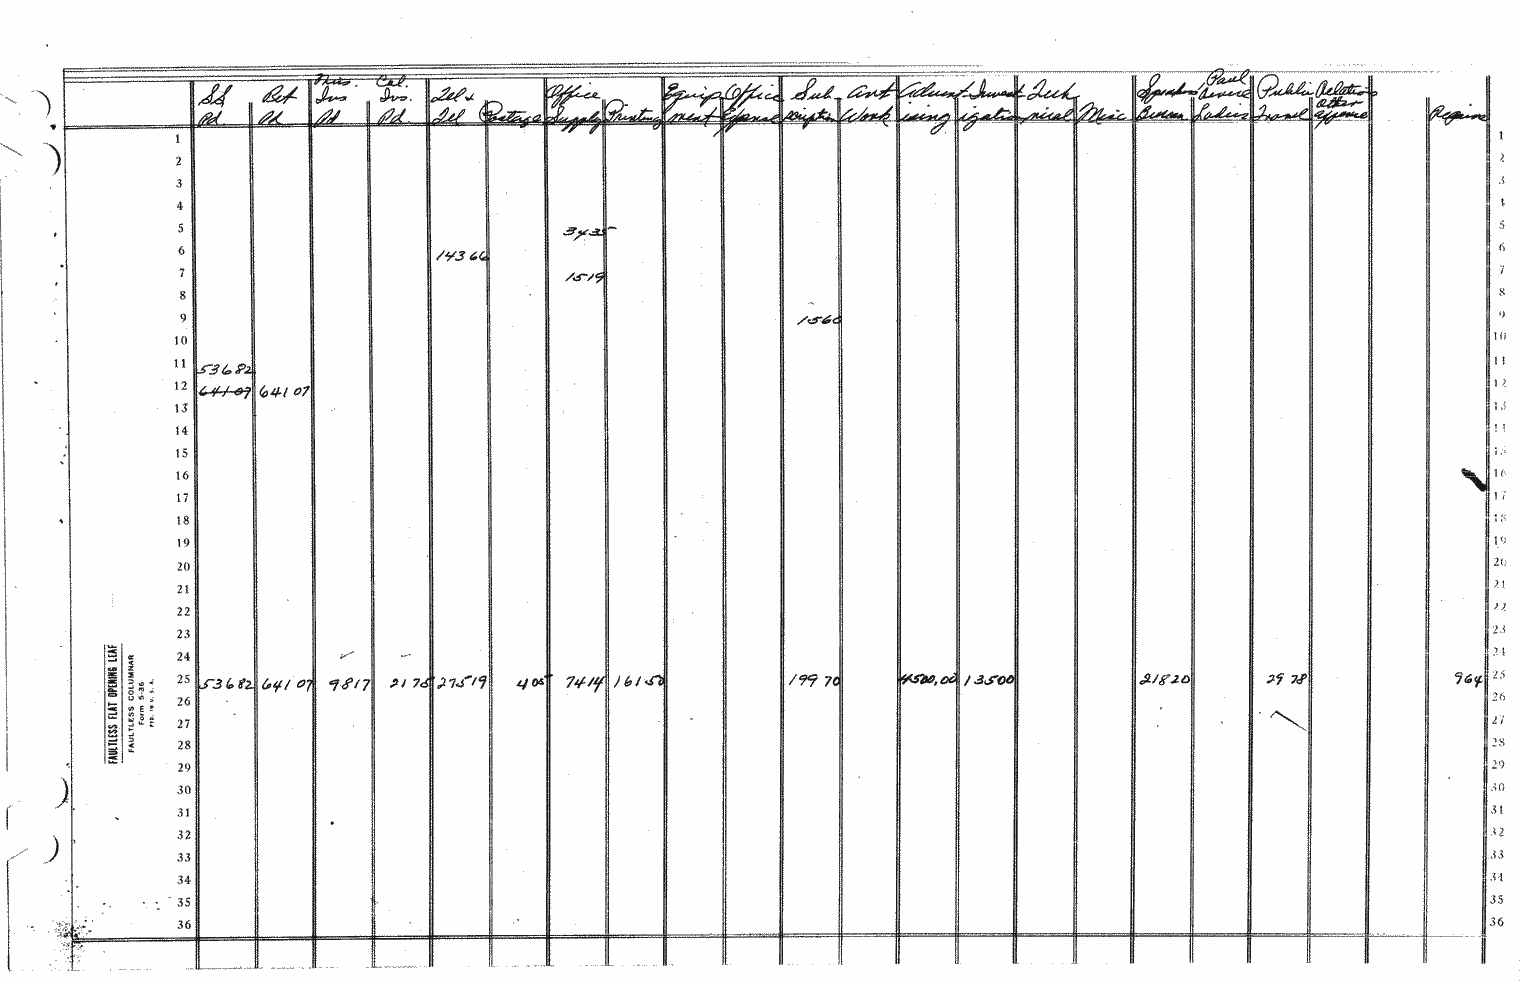 Mis. Cal. Paul
SS Ret Ins Ins. Tel & Office Equip Office Sub Art Advert Invest Tech Speakers Revere Public Relations
Pd Pd Pd Pd. Tel Postage Supply Printing ment Expense scription Work ising igation nical Misc Bureau Ladies Travel Other Expense Repairs
1 1
2 2
3 3
4 4
5 3435 5
6 143 66 6
7 1519 7
8 8
9 1560 9
10 10
11 536 82 11
12 641 07 641 07 12
13 13
14 14
15 15
16 16
17 17
18 18
19 19
20 20
21 21
22 22
23 23
24 24
25 536 82 641 07 98 17 21 75 275 19 4 05 74 14 161 50 199 70 4500.00 135 00 218 20 29 78 9 64 25
26 26
27 27
28 28
29 29
30 30
31 31
32 32
33 33
34 34
35 35
36 36
FAULTLESS FLAT OPENING LEAF
FAULTLESS COLUMNAR
Form S-36
PTD. IN U. S. A.